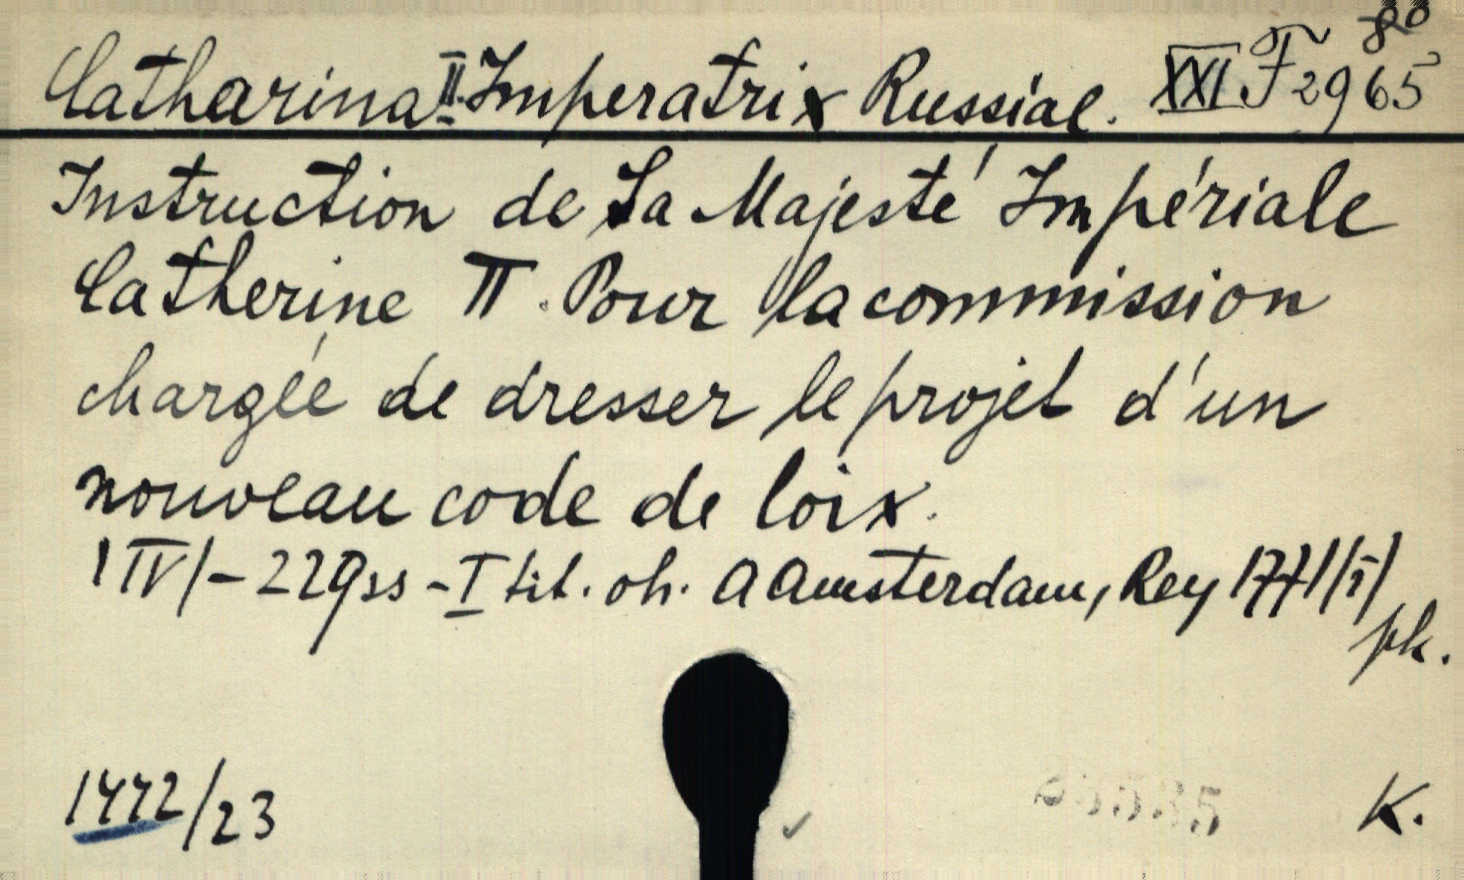 Catharina II. Imperatrix Russiae. XXI. F 2965 8°
Instruction de Sa Majesté Impériale
Catherine II. Pour la commission
chargée de dresser le projet d'un
nouveau code de loix.
/IV/-229 ss - I tit. oh. A Amsterdam, Rey 1771/i/
pk.
1472/23
K.